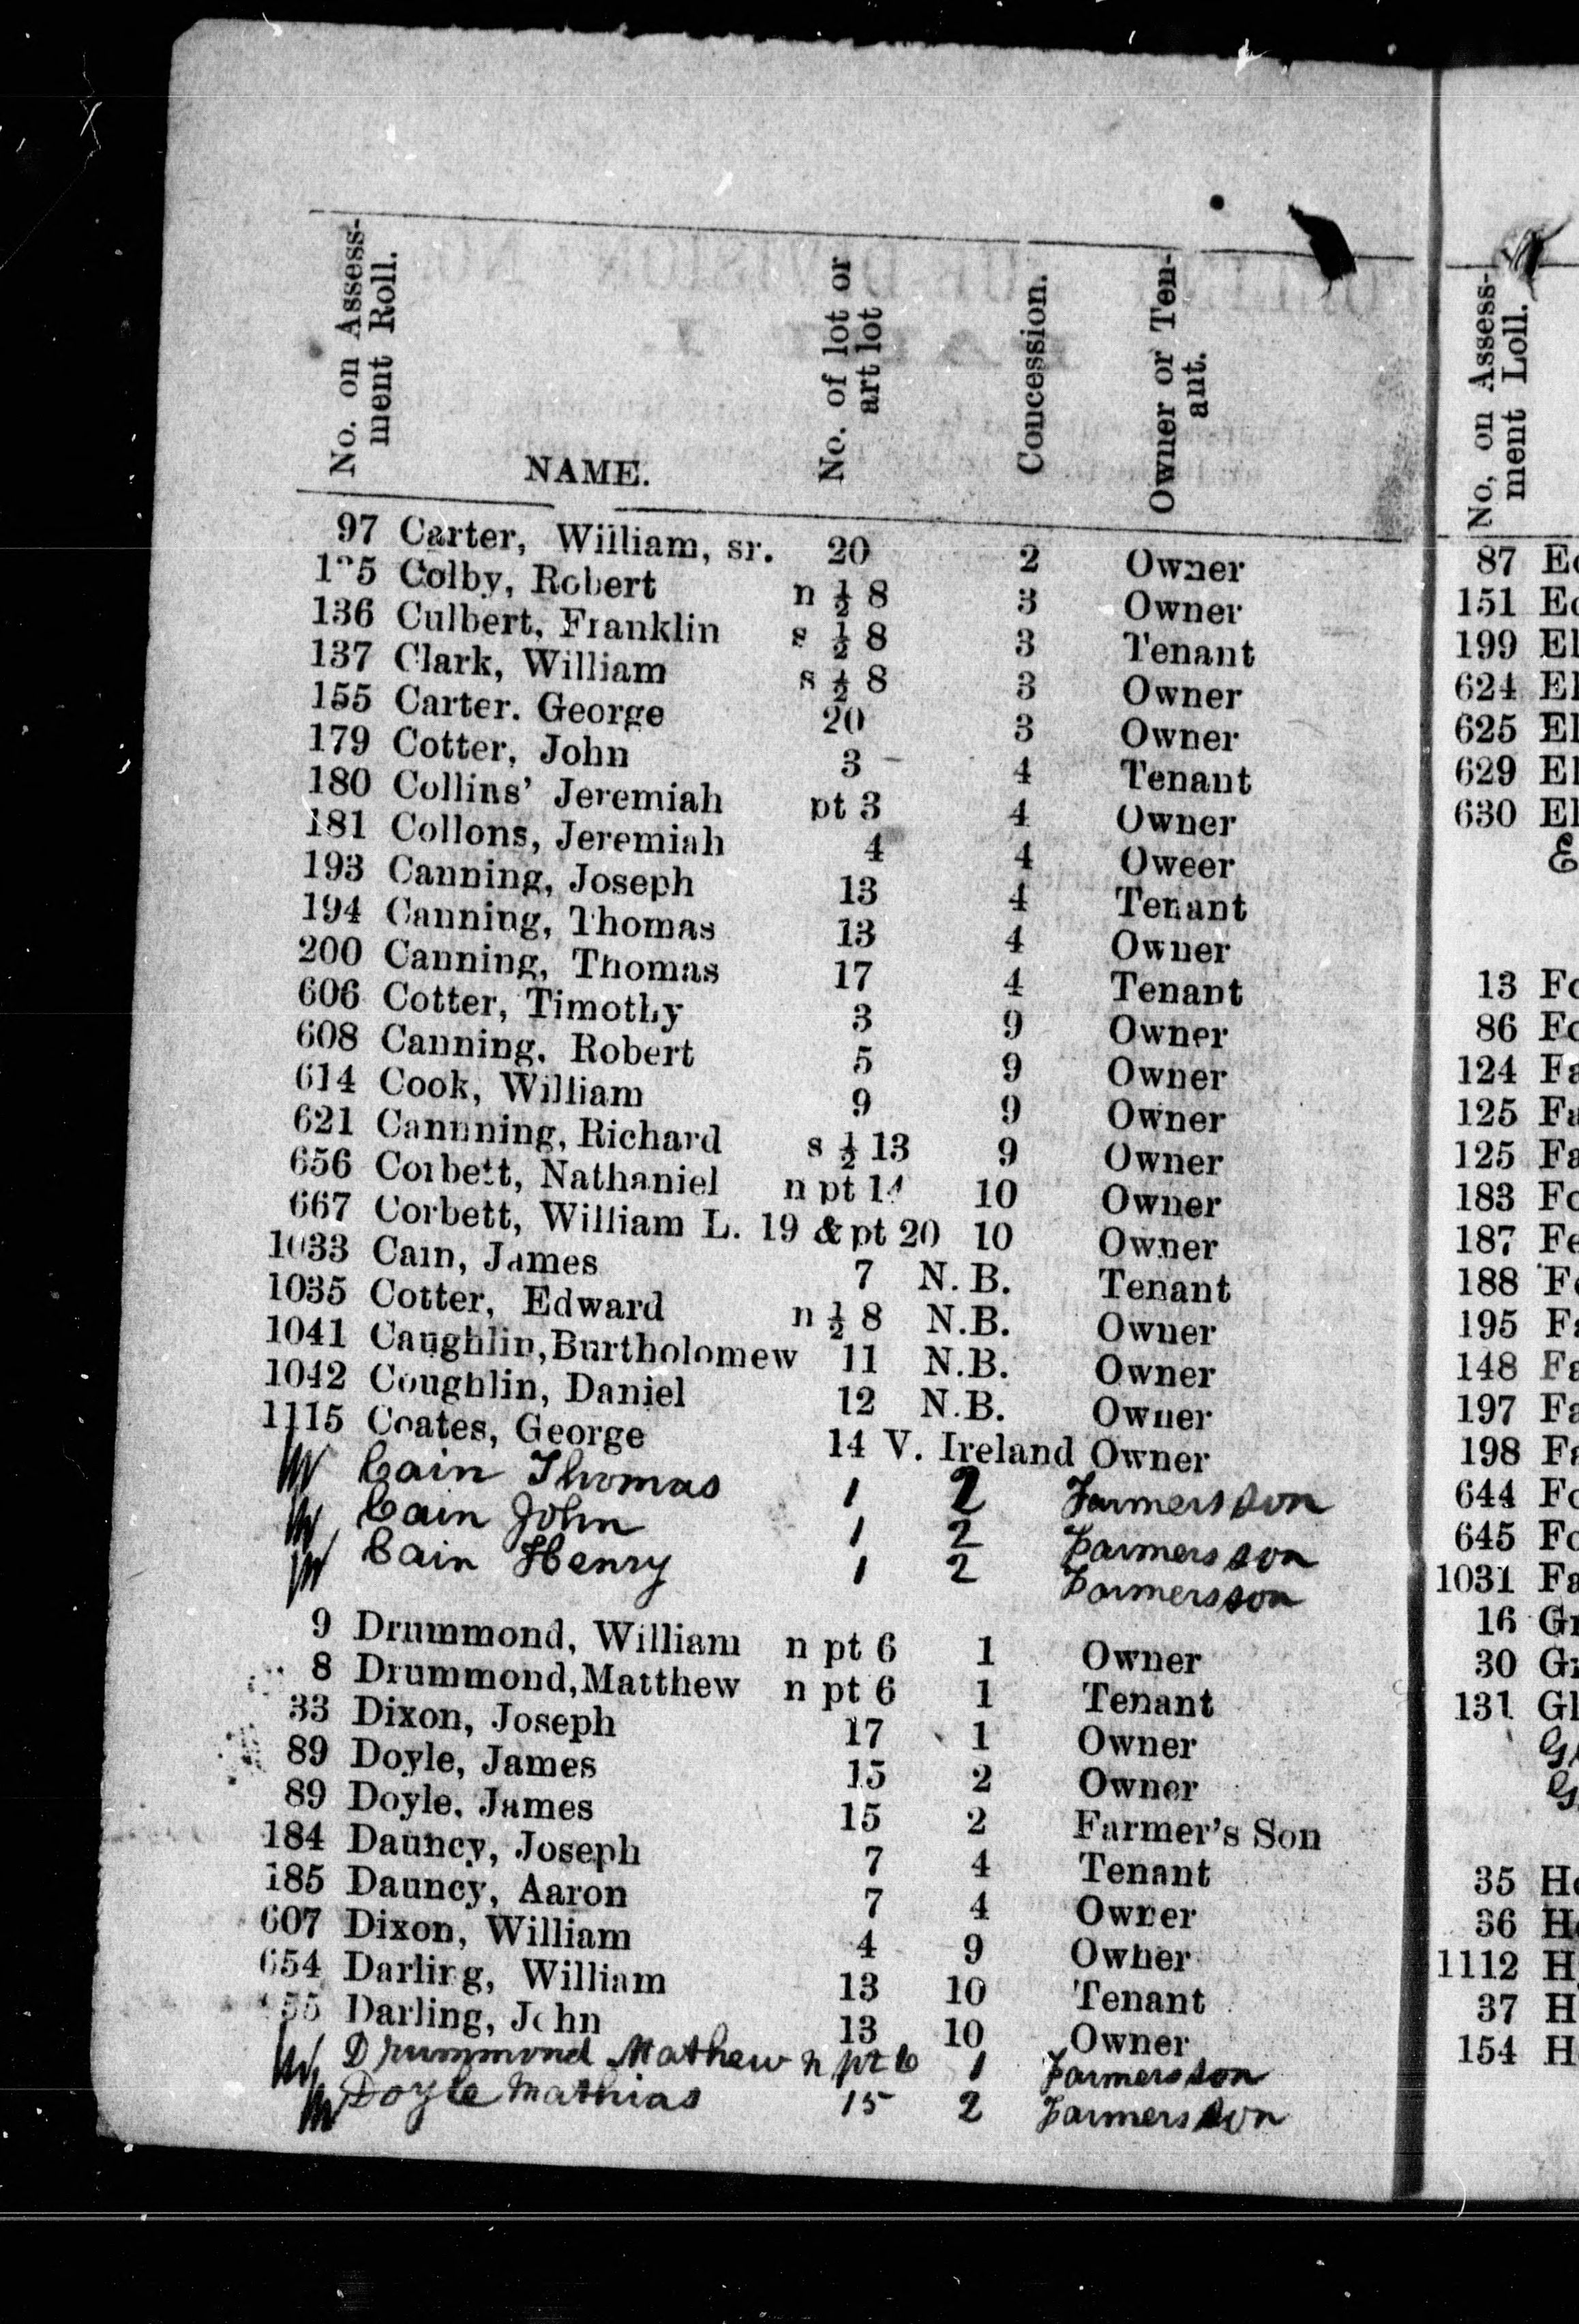 No. on Assess-
ment Roll.
NAME.
No. of lot or
art lot
Concession.
Owner or Ten-
ant.
97 Carter, William, sr. 20 2 Owner
Colby, Robert n ½ 8 3 Owner
136 Culbert, Franklin s ½ 8 3 Tenant
137 Clark, William s ½ 8 3 Owner
155 Carter. George 20 3 Owner
179 Cotter, John 3 4 Tenant
180 Collins' Jeremiah pt 3 4 Owner
181 Collons, Jeremiah 4 4 Oweer
193 Canning, Joseph 13 4 Tenant
194 Canning, Thomas 13 4 Owner
200 Canning, Thomas 17 4 Tenant
606 Cotter, Timothy 3 9 Owner
608 Canning, Robert 5 9 Owner
614 Cook, William 9 9 Owner
621 Cannning, Richard s ½ 13 9 Owner
656 Corbett, Nathaniel n pt 14 10 Owner
667 Corbett, William L. 19 & pt 20 10 Owner
1033 Cain, James 7 N. B. Tenant
1035 Cotter, Edward n ½ 8 N.B. Owner
1041 Caughlin, Burtholomew 11 N.B. Owner
1042 Coughlin, Daniel 12 N.B. Owner
1115 Coates, George 14 V. Ireland Owner
Cain Thomas 1 2 Farmers Son
Cain John 1 2 Farmers son
Cain Henry 1 2 Farmers son
9 Drummond, William n pt 6 1 Owner
8 Drummond, Matthew n pt 6 1 Tenant
33 Dixon, Joseph 17 1 Owner
89 Doyle, James 15 2 Owner
89 Doyle, James 15 2 Farmer's Son
184 Dauncy, Joseph 7 4 Tenant
185 Dauncy, Aaron 7 4 Owner
607 Dixon, William 4 9 Owner
654 Darling, William 13 10 Tenant
55 Darling, John 13 10 Owner
Drummond Mathew n pt 6 1 Farmers son
Doyle Mathias 15 2 Farmers Son
No, on Assess-
ment Loll.
87 Ed
151 Ed
199 El
624 El
625 El
629 El
630 El
E
13 Fo
86 Fo
124 Fa
125 Fa
125 Fa
183 Fo
187 Fe
188 Fe
195 Fa
148 Fa
197 Fa
198 Fa
644 Fo
645 Fo
1031 Fa
16 Gr
30 Gr
131 Gl
G
G
35 Ho
36 H
1112 H
37 H
154 H